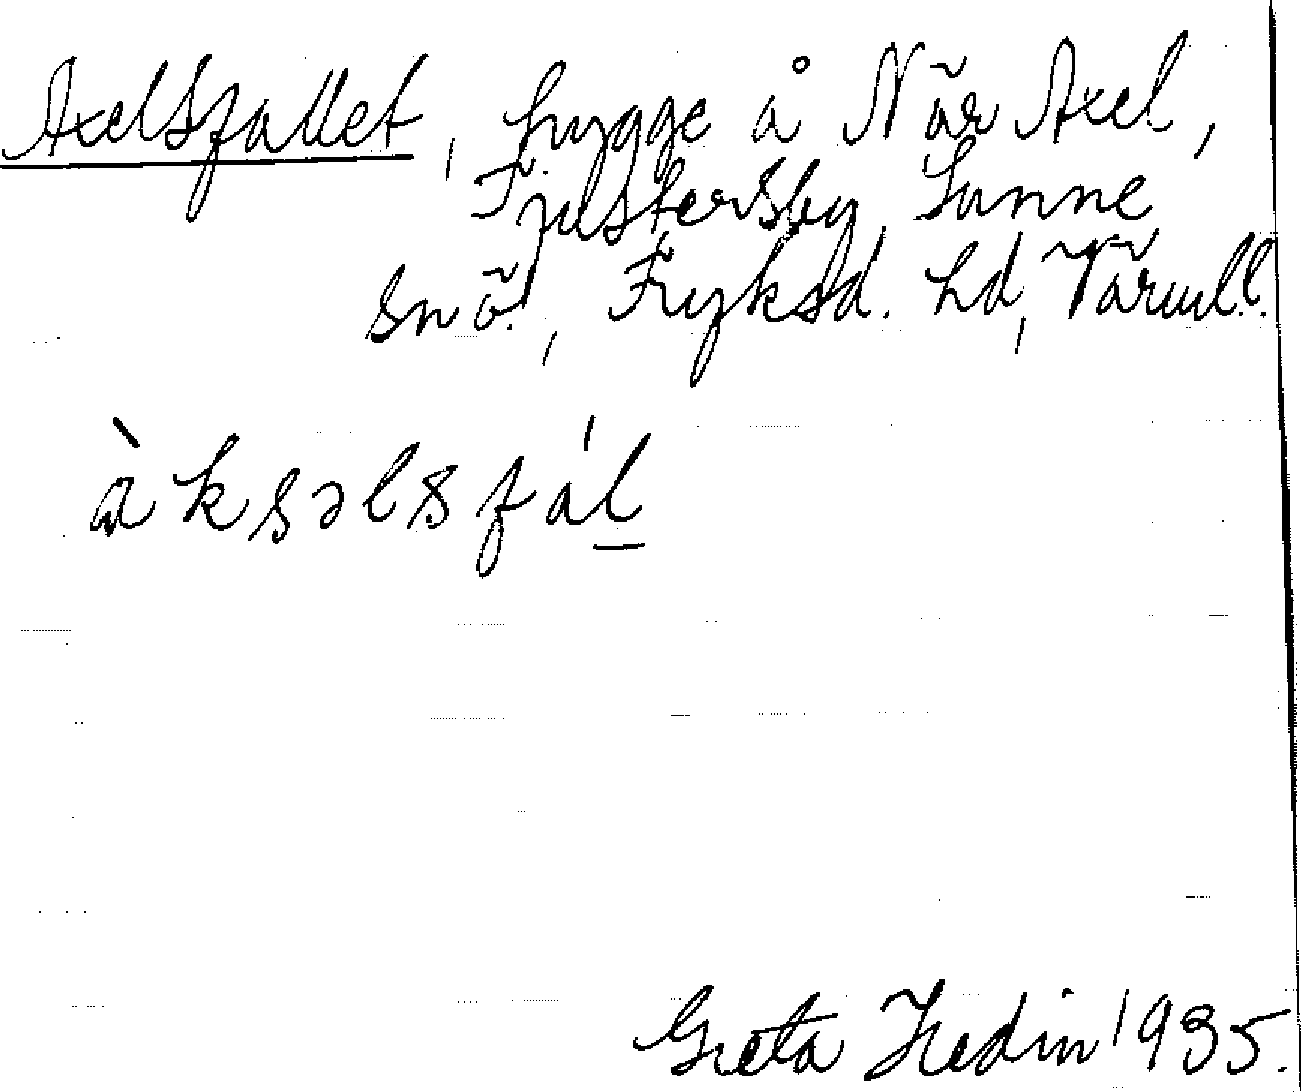 Axelsfallet, hygge å När Axel,
Fjelstersby, Sunne
snō., Fryksd. hd, Värml.
àksəlsfál
Greta Hedin 1935.